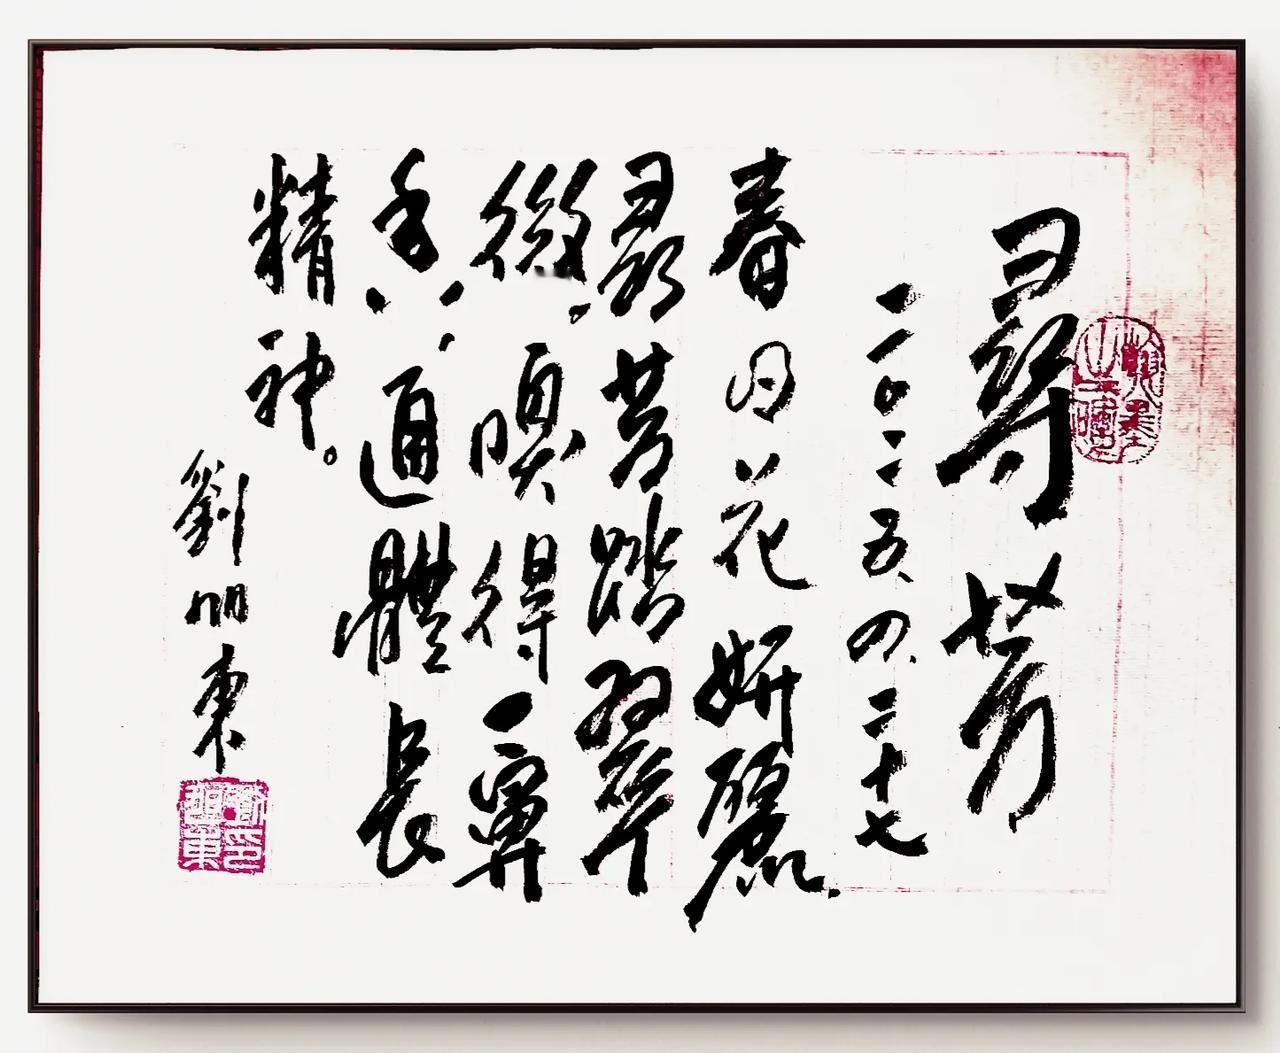 尋芳
二〇二五、四、二十七
春日花妍麗、
尋芳踏翠
微。嗅得一鼻
香、通體長
精神。
劉東